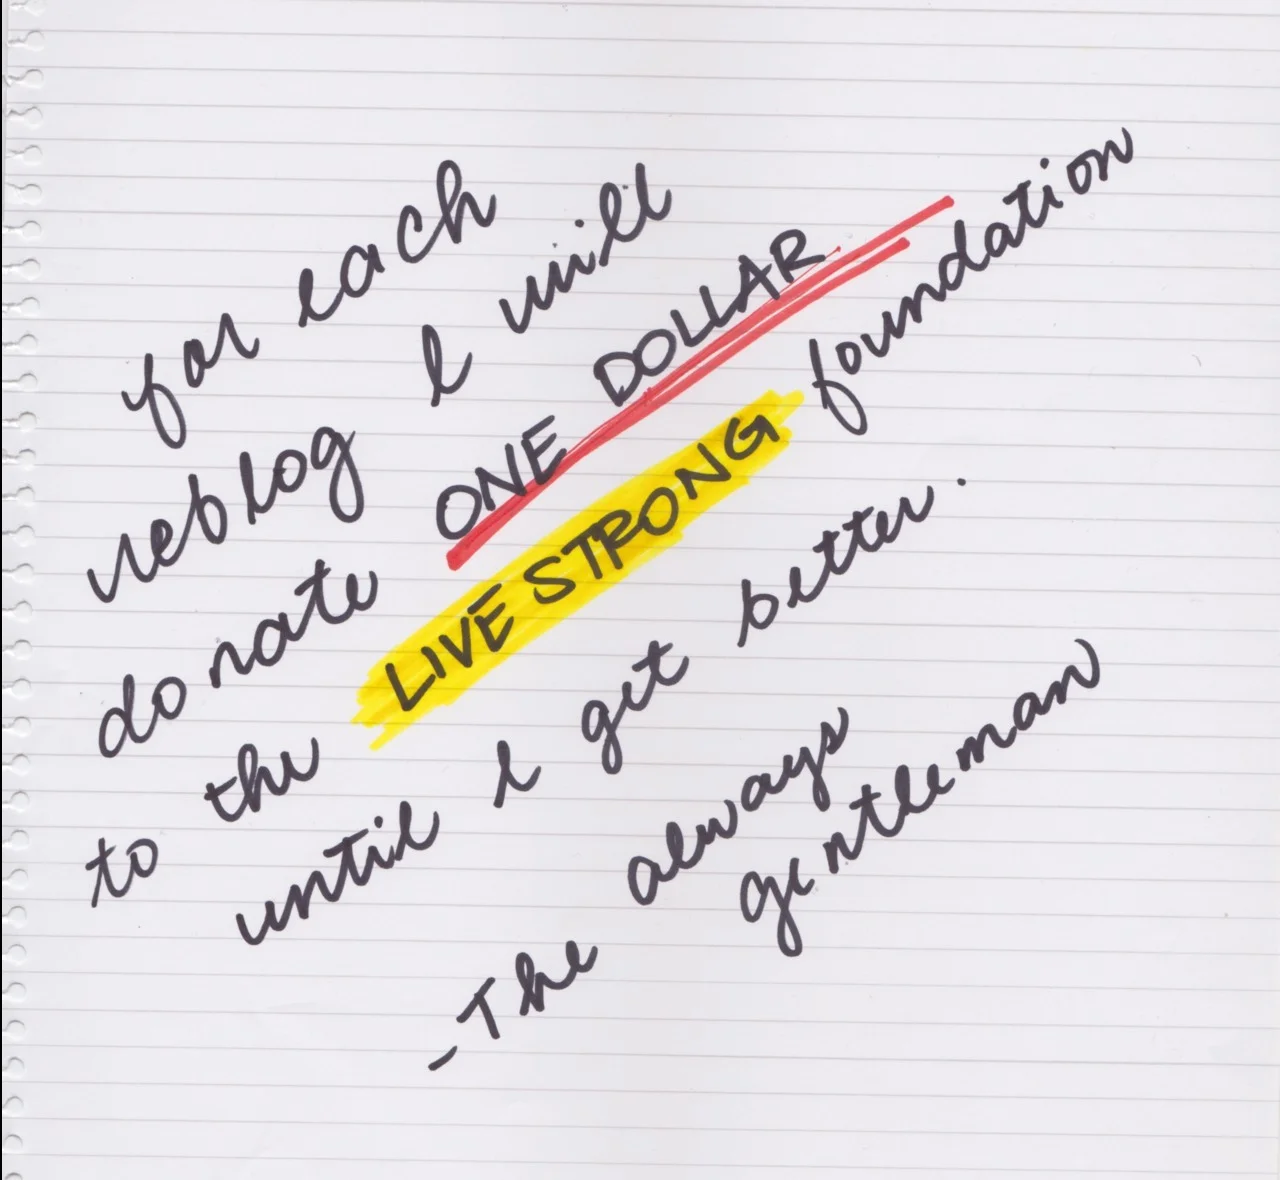 for each
reblog I will
donate ONE DOLLAR
to the LIVESTRONG foundation
until I get better.
-The always
gentleman